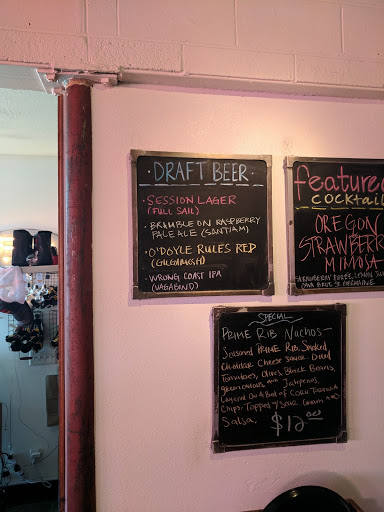 ·DRAFT BEER·
·SESSION LAGER
(FULL SAIL)
·BRAMBLE ON RASPBERRY
PALE ALE (SANTIAM)
·O'DOYLE RULES RED
(GILGAMESH)
·WRONG COAST IPA
(VAGABOND)
featured
cocktail
OREGON
STRAWBERRY
MIMOSA
STRAWBERRY PUREE, LEMON JUI
CAVA BRUT, ST. GERMAINE
SPECIAL
PRIME RIB NACHOS-
SEASONED PRIME RIB, SMOKED
CHEDDAR CHEESE SAUCE, DICED
TOMATOES, OLIVES, BLACK BEANS,
GREEN ONIONS AND JALAPENOS.
LAYERED ON A BED OF CORN TORTILLA
CHIPS. TOPPED W/ SOUR CREAM AND
SALSA. $12.00